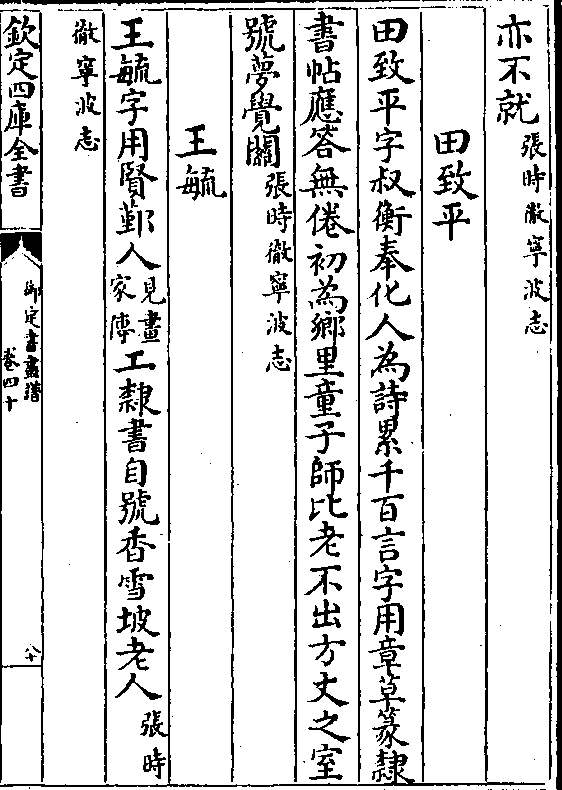 亦不就張時徹寧波志
田致平
田致平字叔衡奉化人為詩累千百言字用章草篆隸
書帖應答無倦初為鄉里童子師比老不出方丈之室
號夢覺關張時徹寧波志
王毓
王毓字用賢鄞人見畫家傳工隸書自號香雪坡老人張時
徹寧波志
欽定四庫全書
御定書畫譜
卷四十
八十